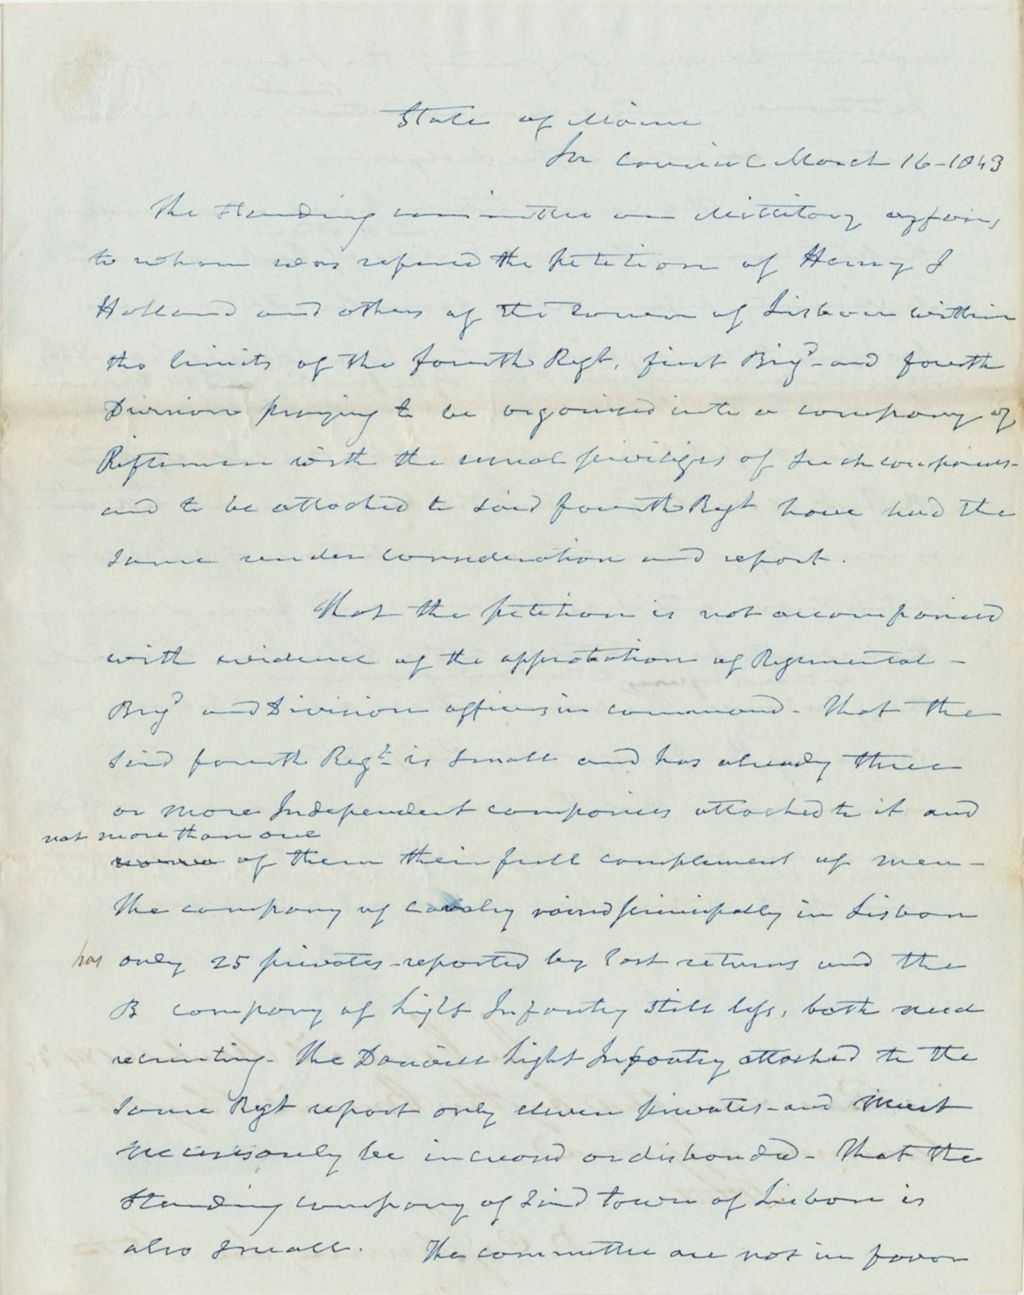 State of Maine
In Council March 16-1843
The Standing committee on Millitary affairs
to whom was refered the petition of Henry J
Holland and others of the town of Lisbon within
the limits of the fourth Regt. first Brigd- and fourth
Division praying to be organised into a company of
Riflemen with the usual priviliges of such companies-
and to be attached to said fourth Regt have had the
same under consideration and report.
That the petition is not accompanied
with evidence of the approbation of Regimental -
Brigd and Division officers in command - That the
said fourth Regt is small and has already three
or more Independent companies attached to it and
not more than one
of them their full complement of men -
The company of Cavalry raised principally in Lisbon
has only 25 privates-reported by last returns and the
B company of Light Infantry still less, both need
recruiting- The Danvill Light Infantry attached to the
same Regt report only eleven privates-and must
necessarily be increasd or disbanded- That the
Standing company of said town of Lisbon is
also small. The committee are not in favor